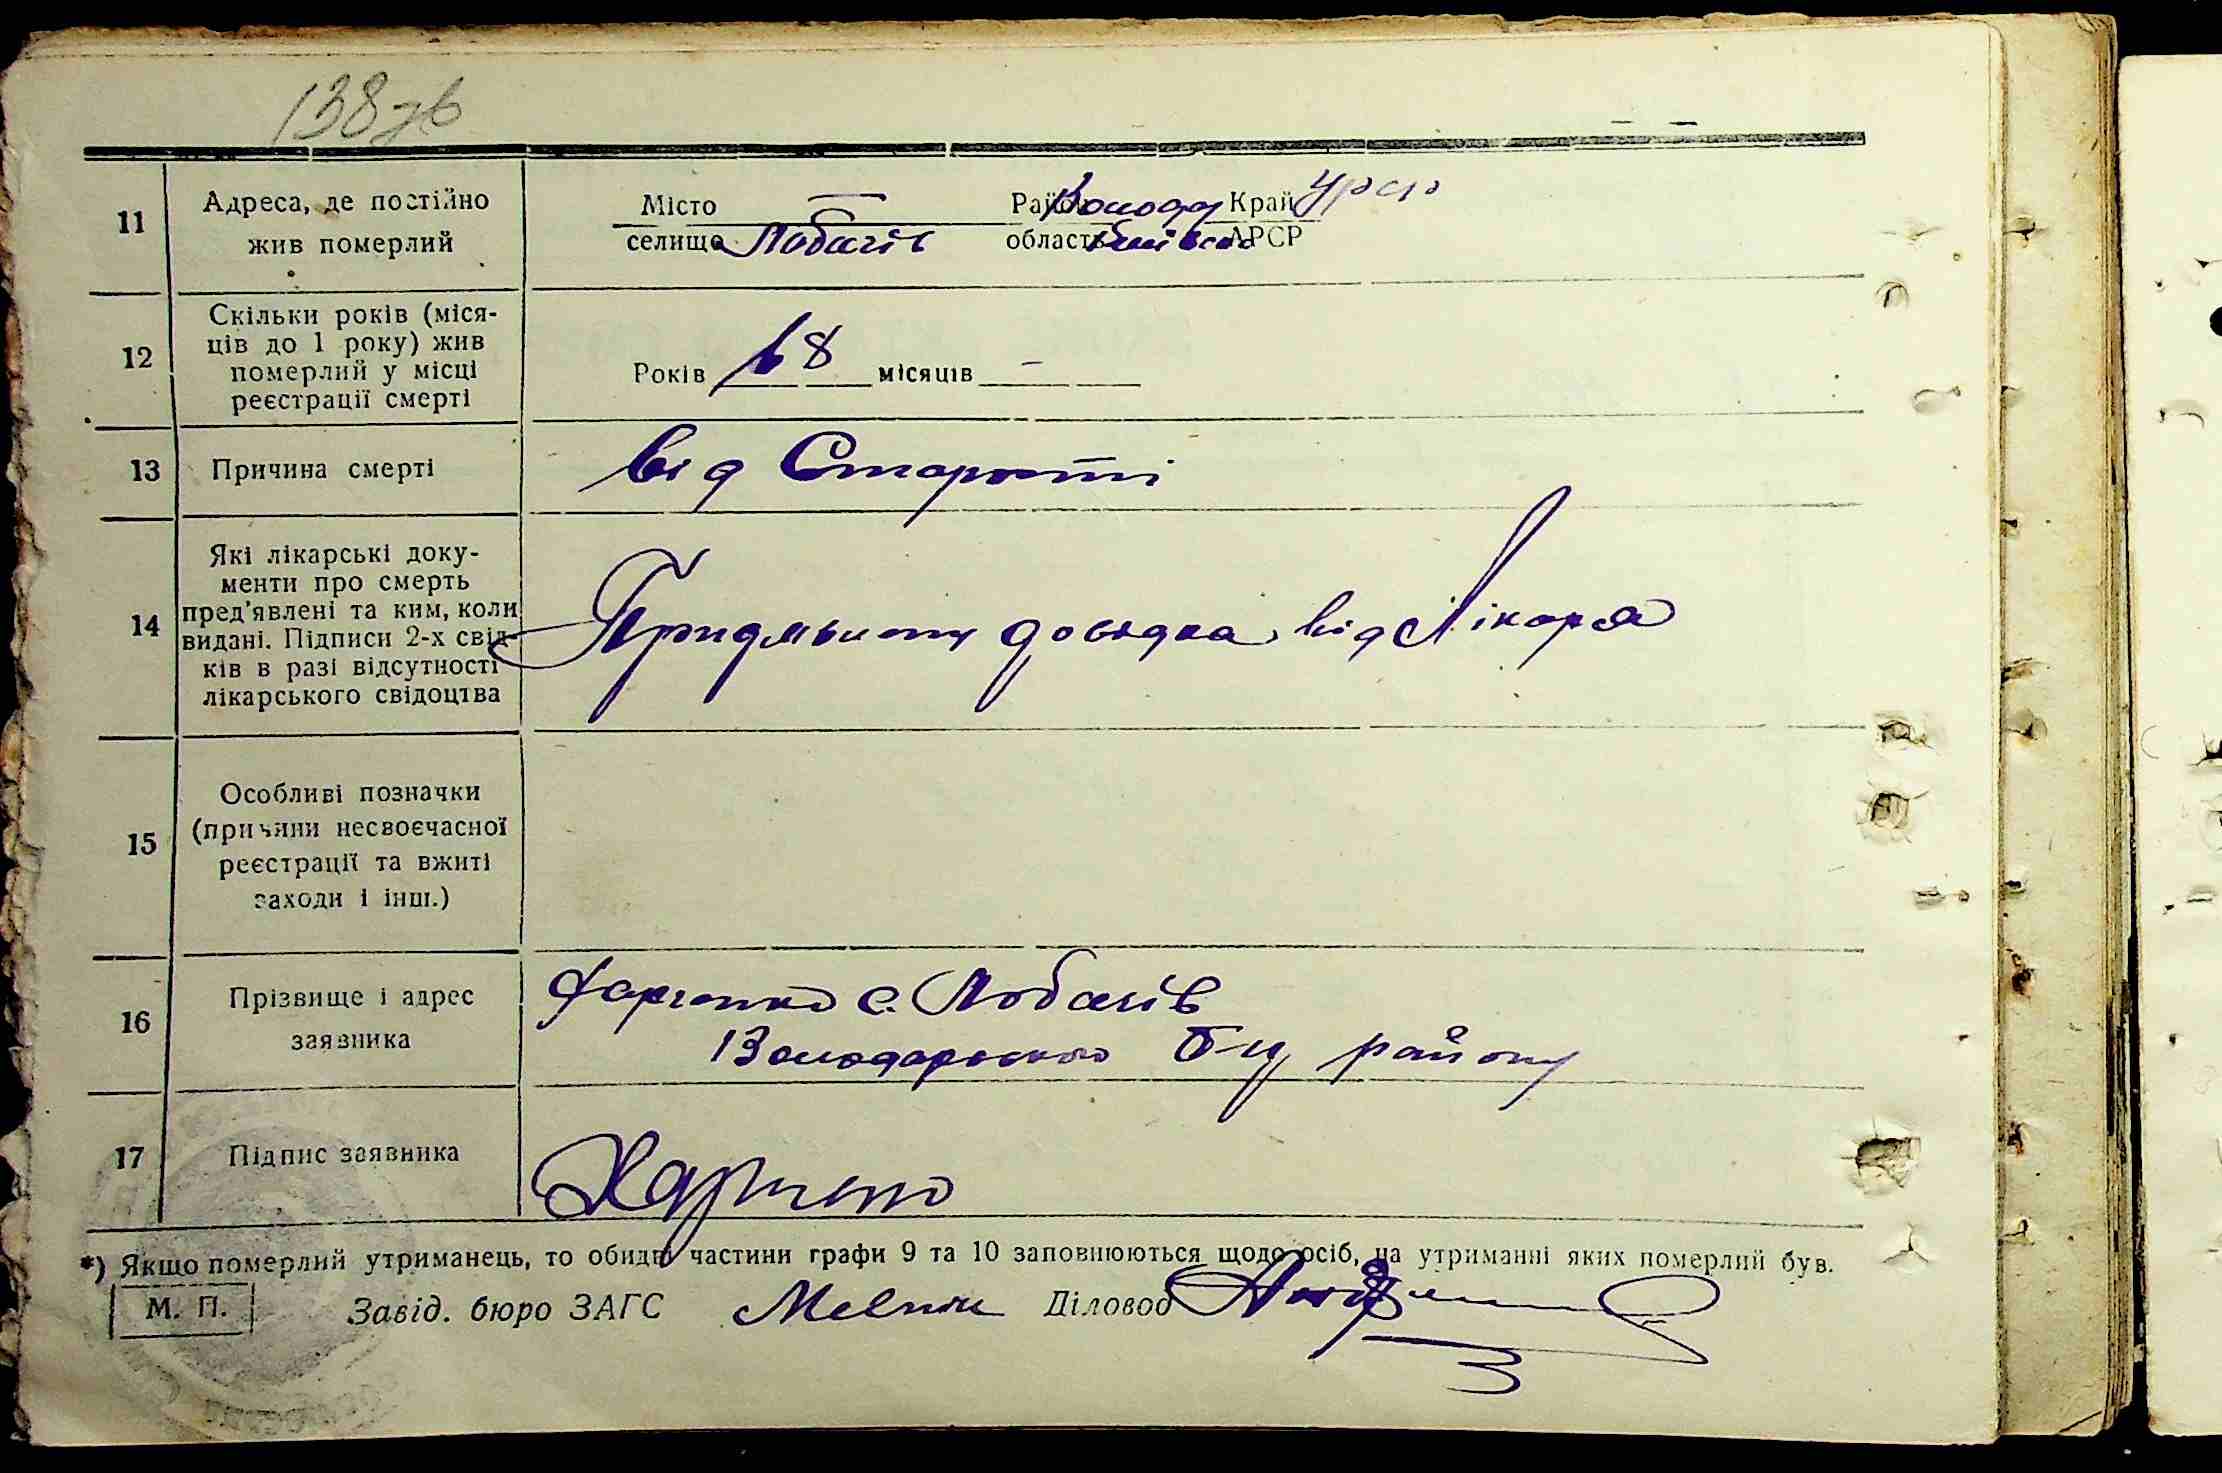 138 зв
11
Адреса, де постійно
жив померлий
Місто — Район Володар Край УРСР
селище Лобачів область Київська АРСР
12
Скільки років (міся-
ців до 1 року) жив
померлий у місці
реєстрації смерті
Років 68 місяців —
13
Причина смерті
від Старості
14
Які лікарські доку-
менти про смерть
пред'явлені та ким, коли
видані. Підписи 2-х свід-
ків в разі відсутності
лікарського свідоцтва
довідка від Лікаря
15
Особливі позначки
(причини несвоєчасної
реєстрації та вжиті
заходи і інш.)
16
Прізвище і адрес
заявника
с. Лобачів
Володарського району
17
Підпис заявника
*) Якщо померлий утриманець, то обидві частини графи 9 та 10 заповнюються щодо осіб, на утриманні яких померлий був.
М. П.
Завід. бюро ЗАГС Мельник Діловод